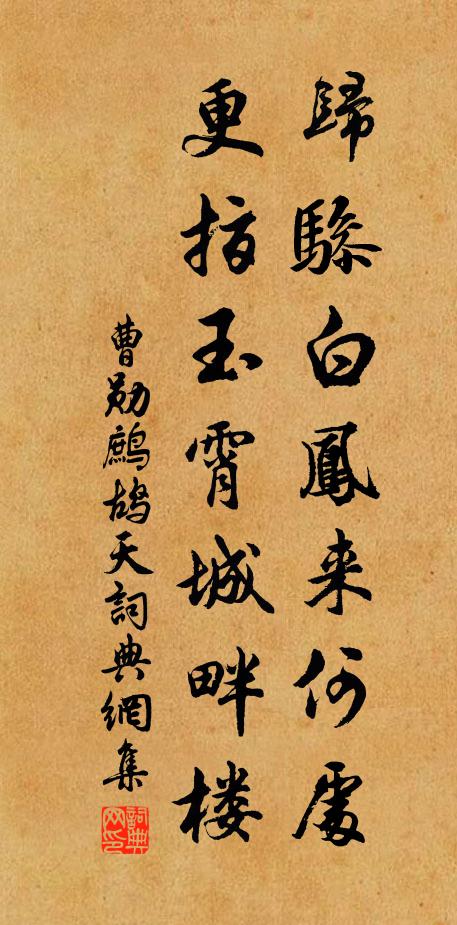 歸驂白鳳来何處
更指玉霄城畔楼
曹勛鷓鴣天詞典網集
詞典网印